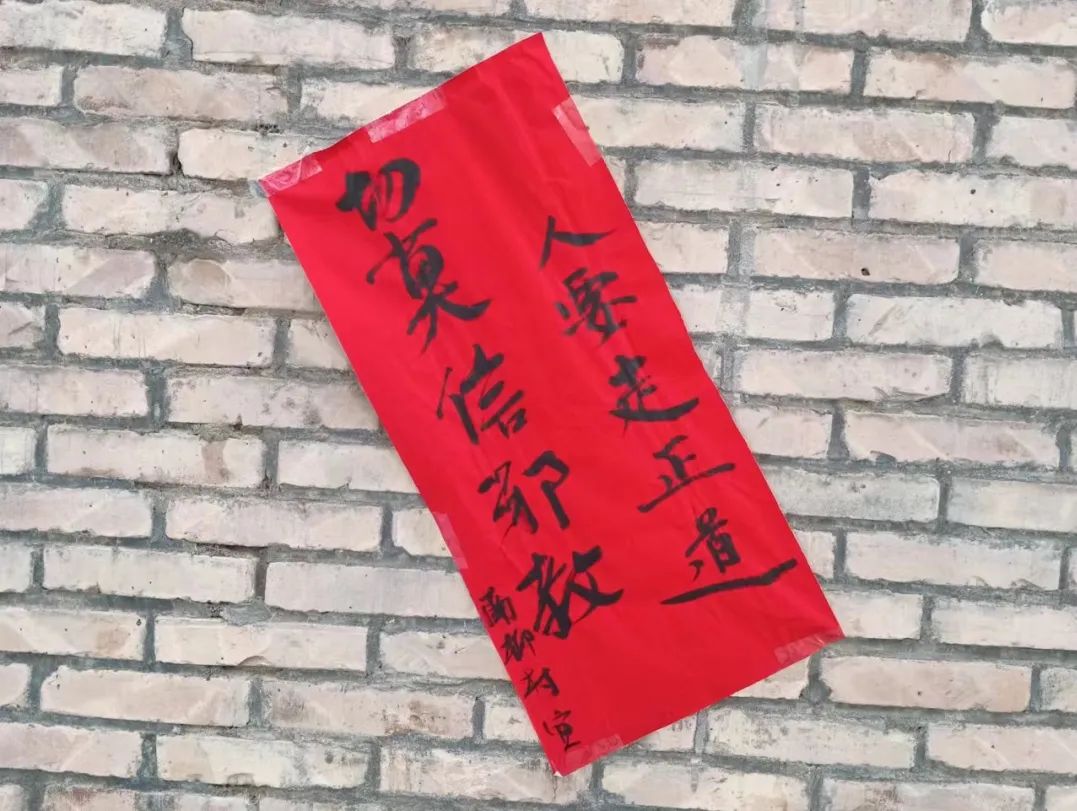 人要走正道
切莫信邪教
南柳村宣